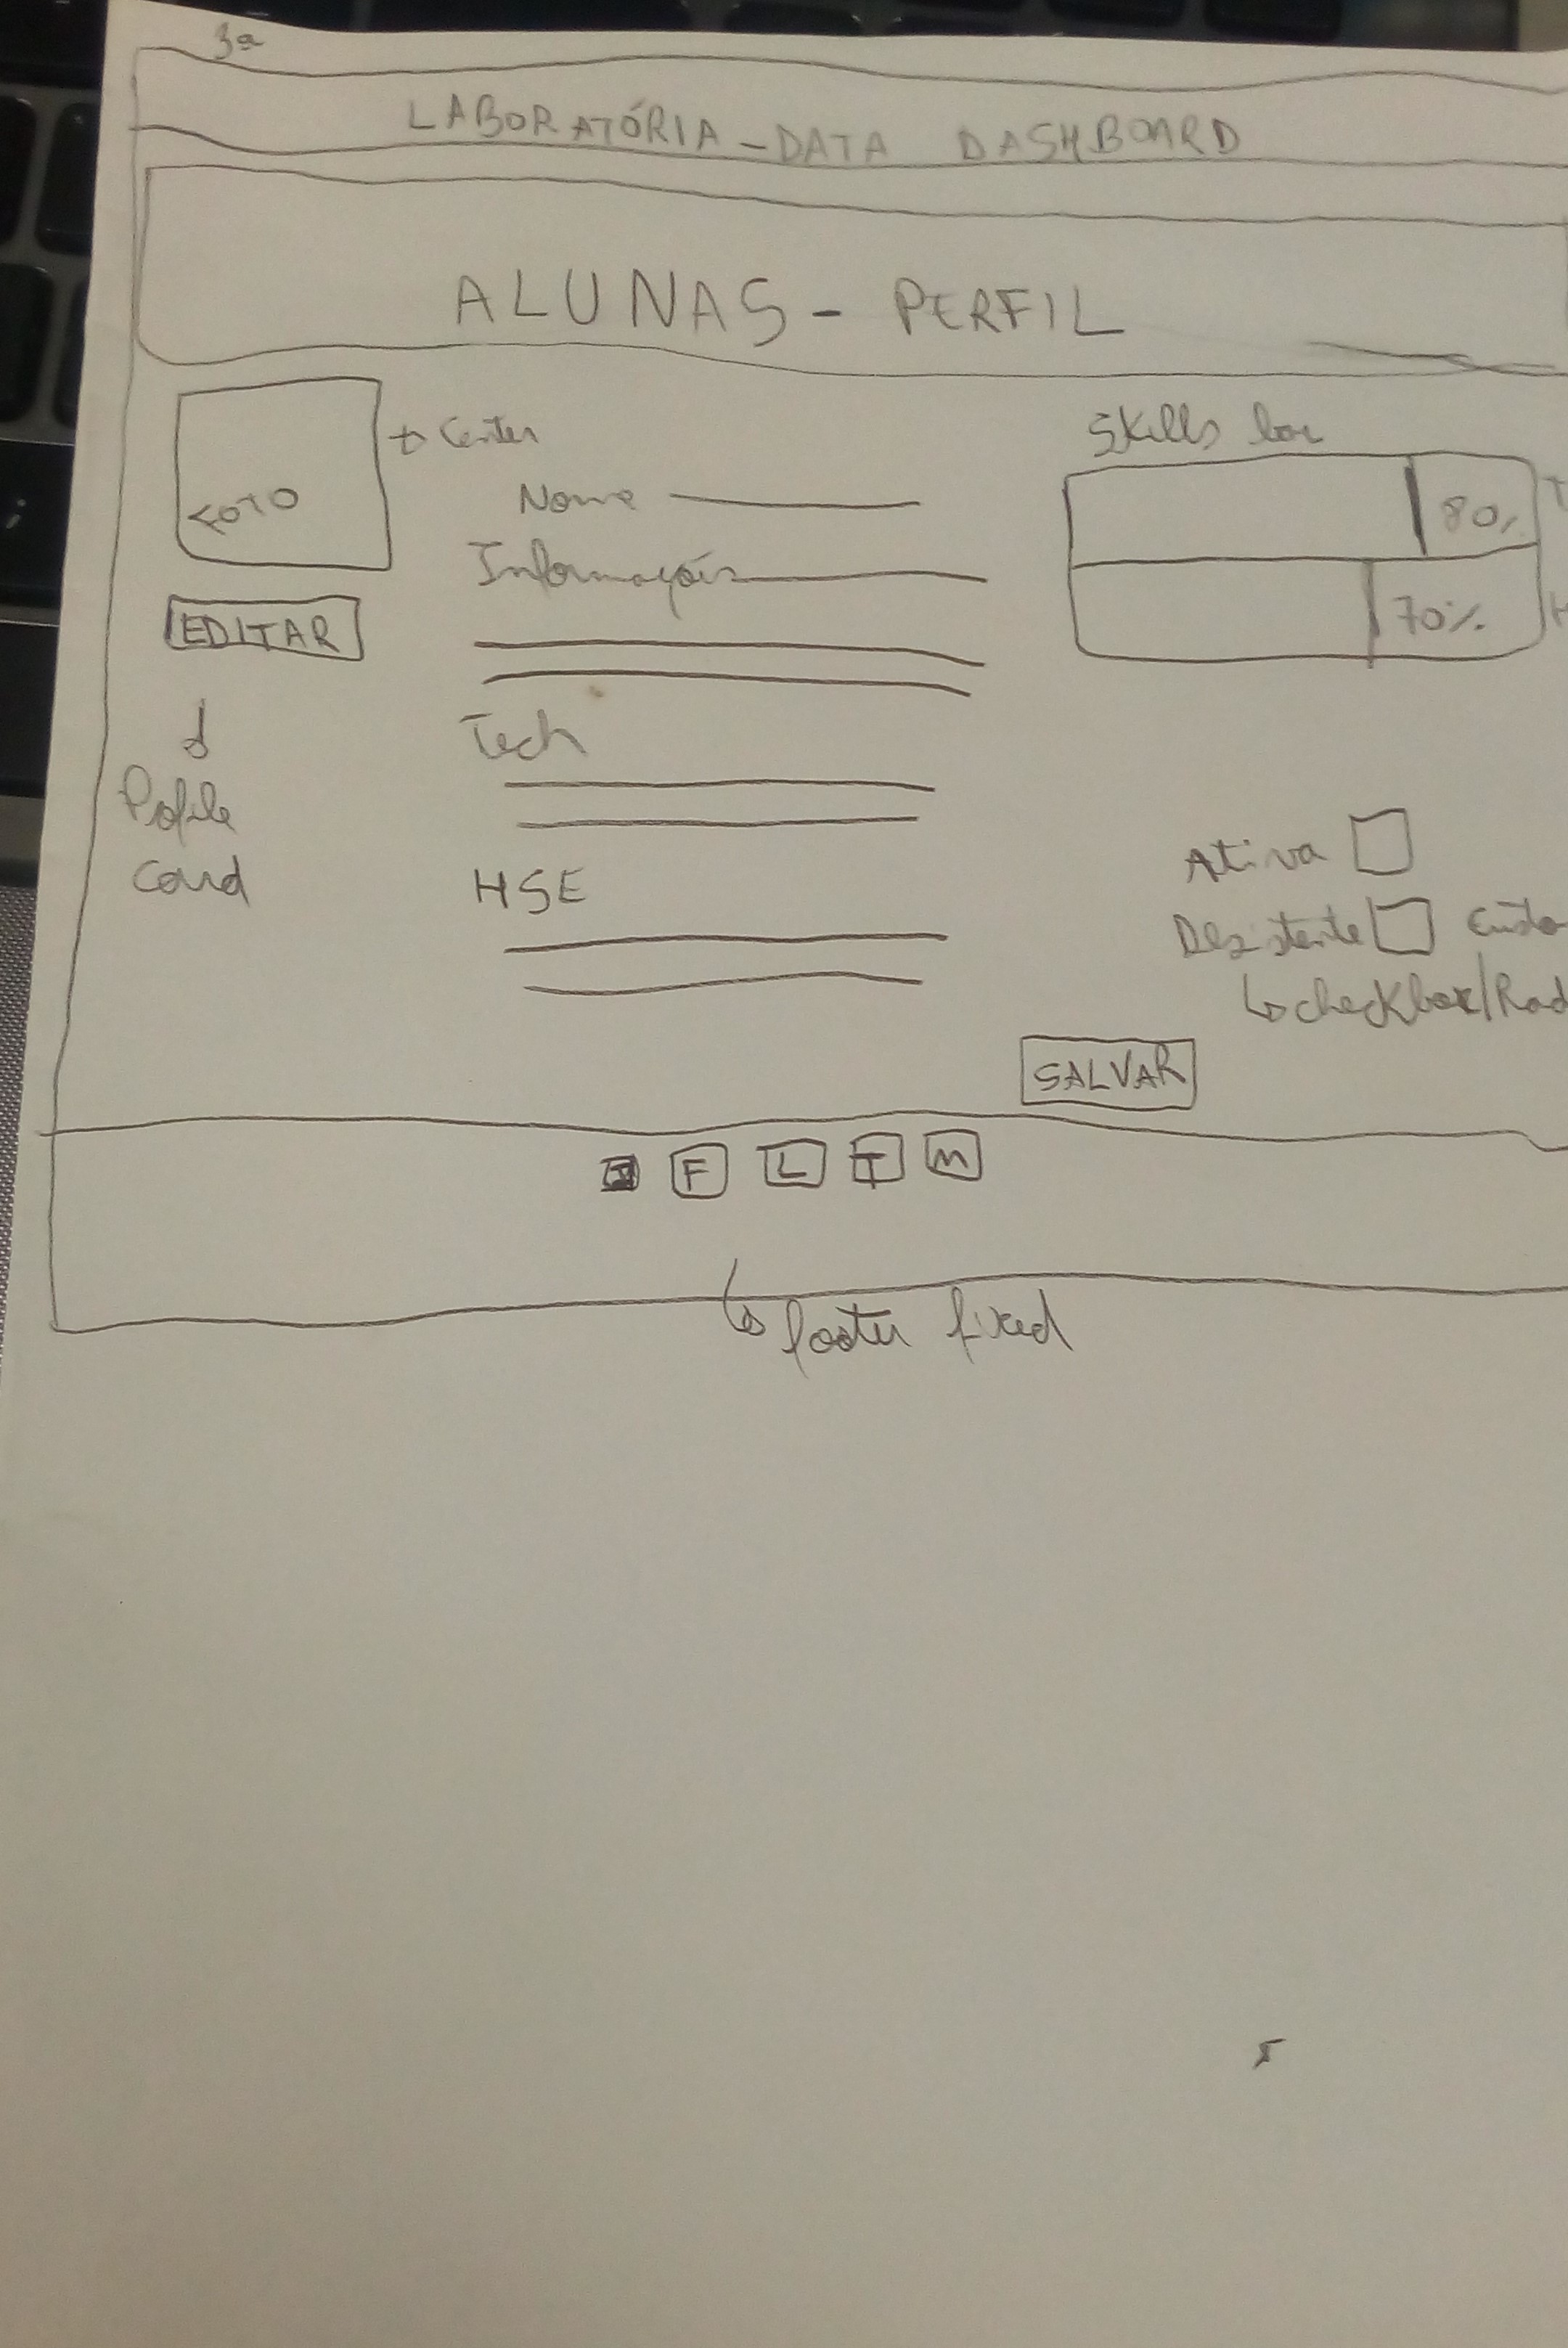 3a
LABORATÓRIA - DATA DASHBOARD
ALUNAS - PERFIL
FOTO
Center
EDITAR
Profile
Card
Nome
Informações
Tech
HSE
Skills bar
80%
T
70%
H
Ativa
Desistente
checkbox/Rad
SALVAR
F L T M
footer fixed